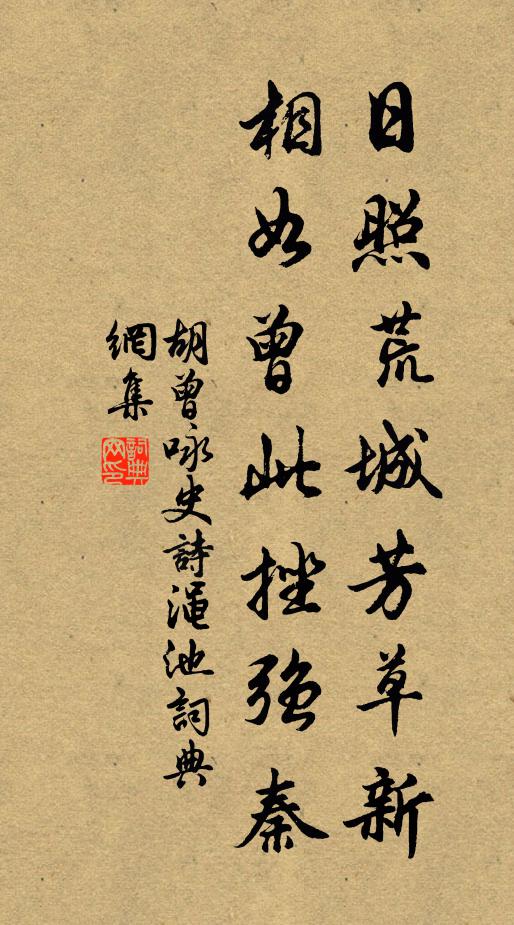 日照荒城芳草新
相如曾此挫強秦
胡曾咏史詩澠池詞典
網集
詞典網印